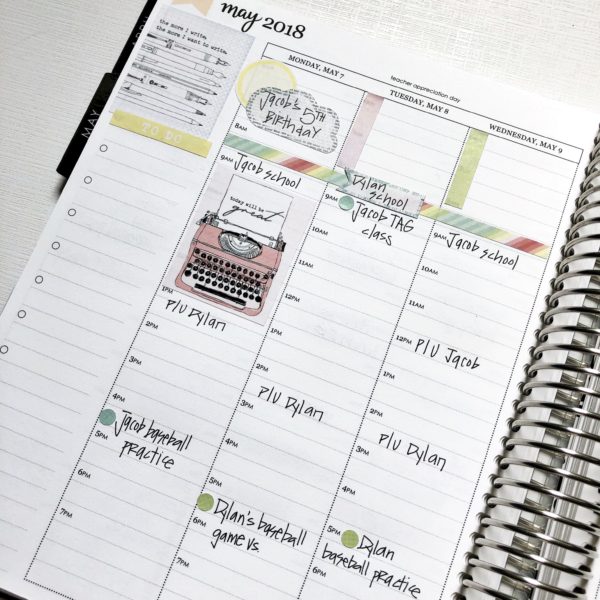 may 2018
the more i write,
the more i want to write.
TO DO
MAY
MONDAY, MAY 7
Jacob's 5TH
Birthday
8AM
9AM
Jacob school
today will be
great
1PM
P/U Dylan
2PM
3PM
4PM
Jacob baseball
5PM
practice
6PM
7PM
teacher appreciation day
TUESDAY, MAY 8
Dylan
school
9AM
Jacob TAG
class
10AM
11AM
12PM
1PM
2PM
P/U Dylan
3PM
4PM
5PM
Dylan's baseball
6PM
game vs.
7PM
WEDNESDAY, MAY 9
9AM
Jacob school
10AM
11AM
12PM
P/U Jacob
1PM
2PM
3PM
P/U Dylan
4PM
5PM
Dylan
baseball practice
6PM